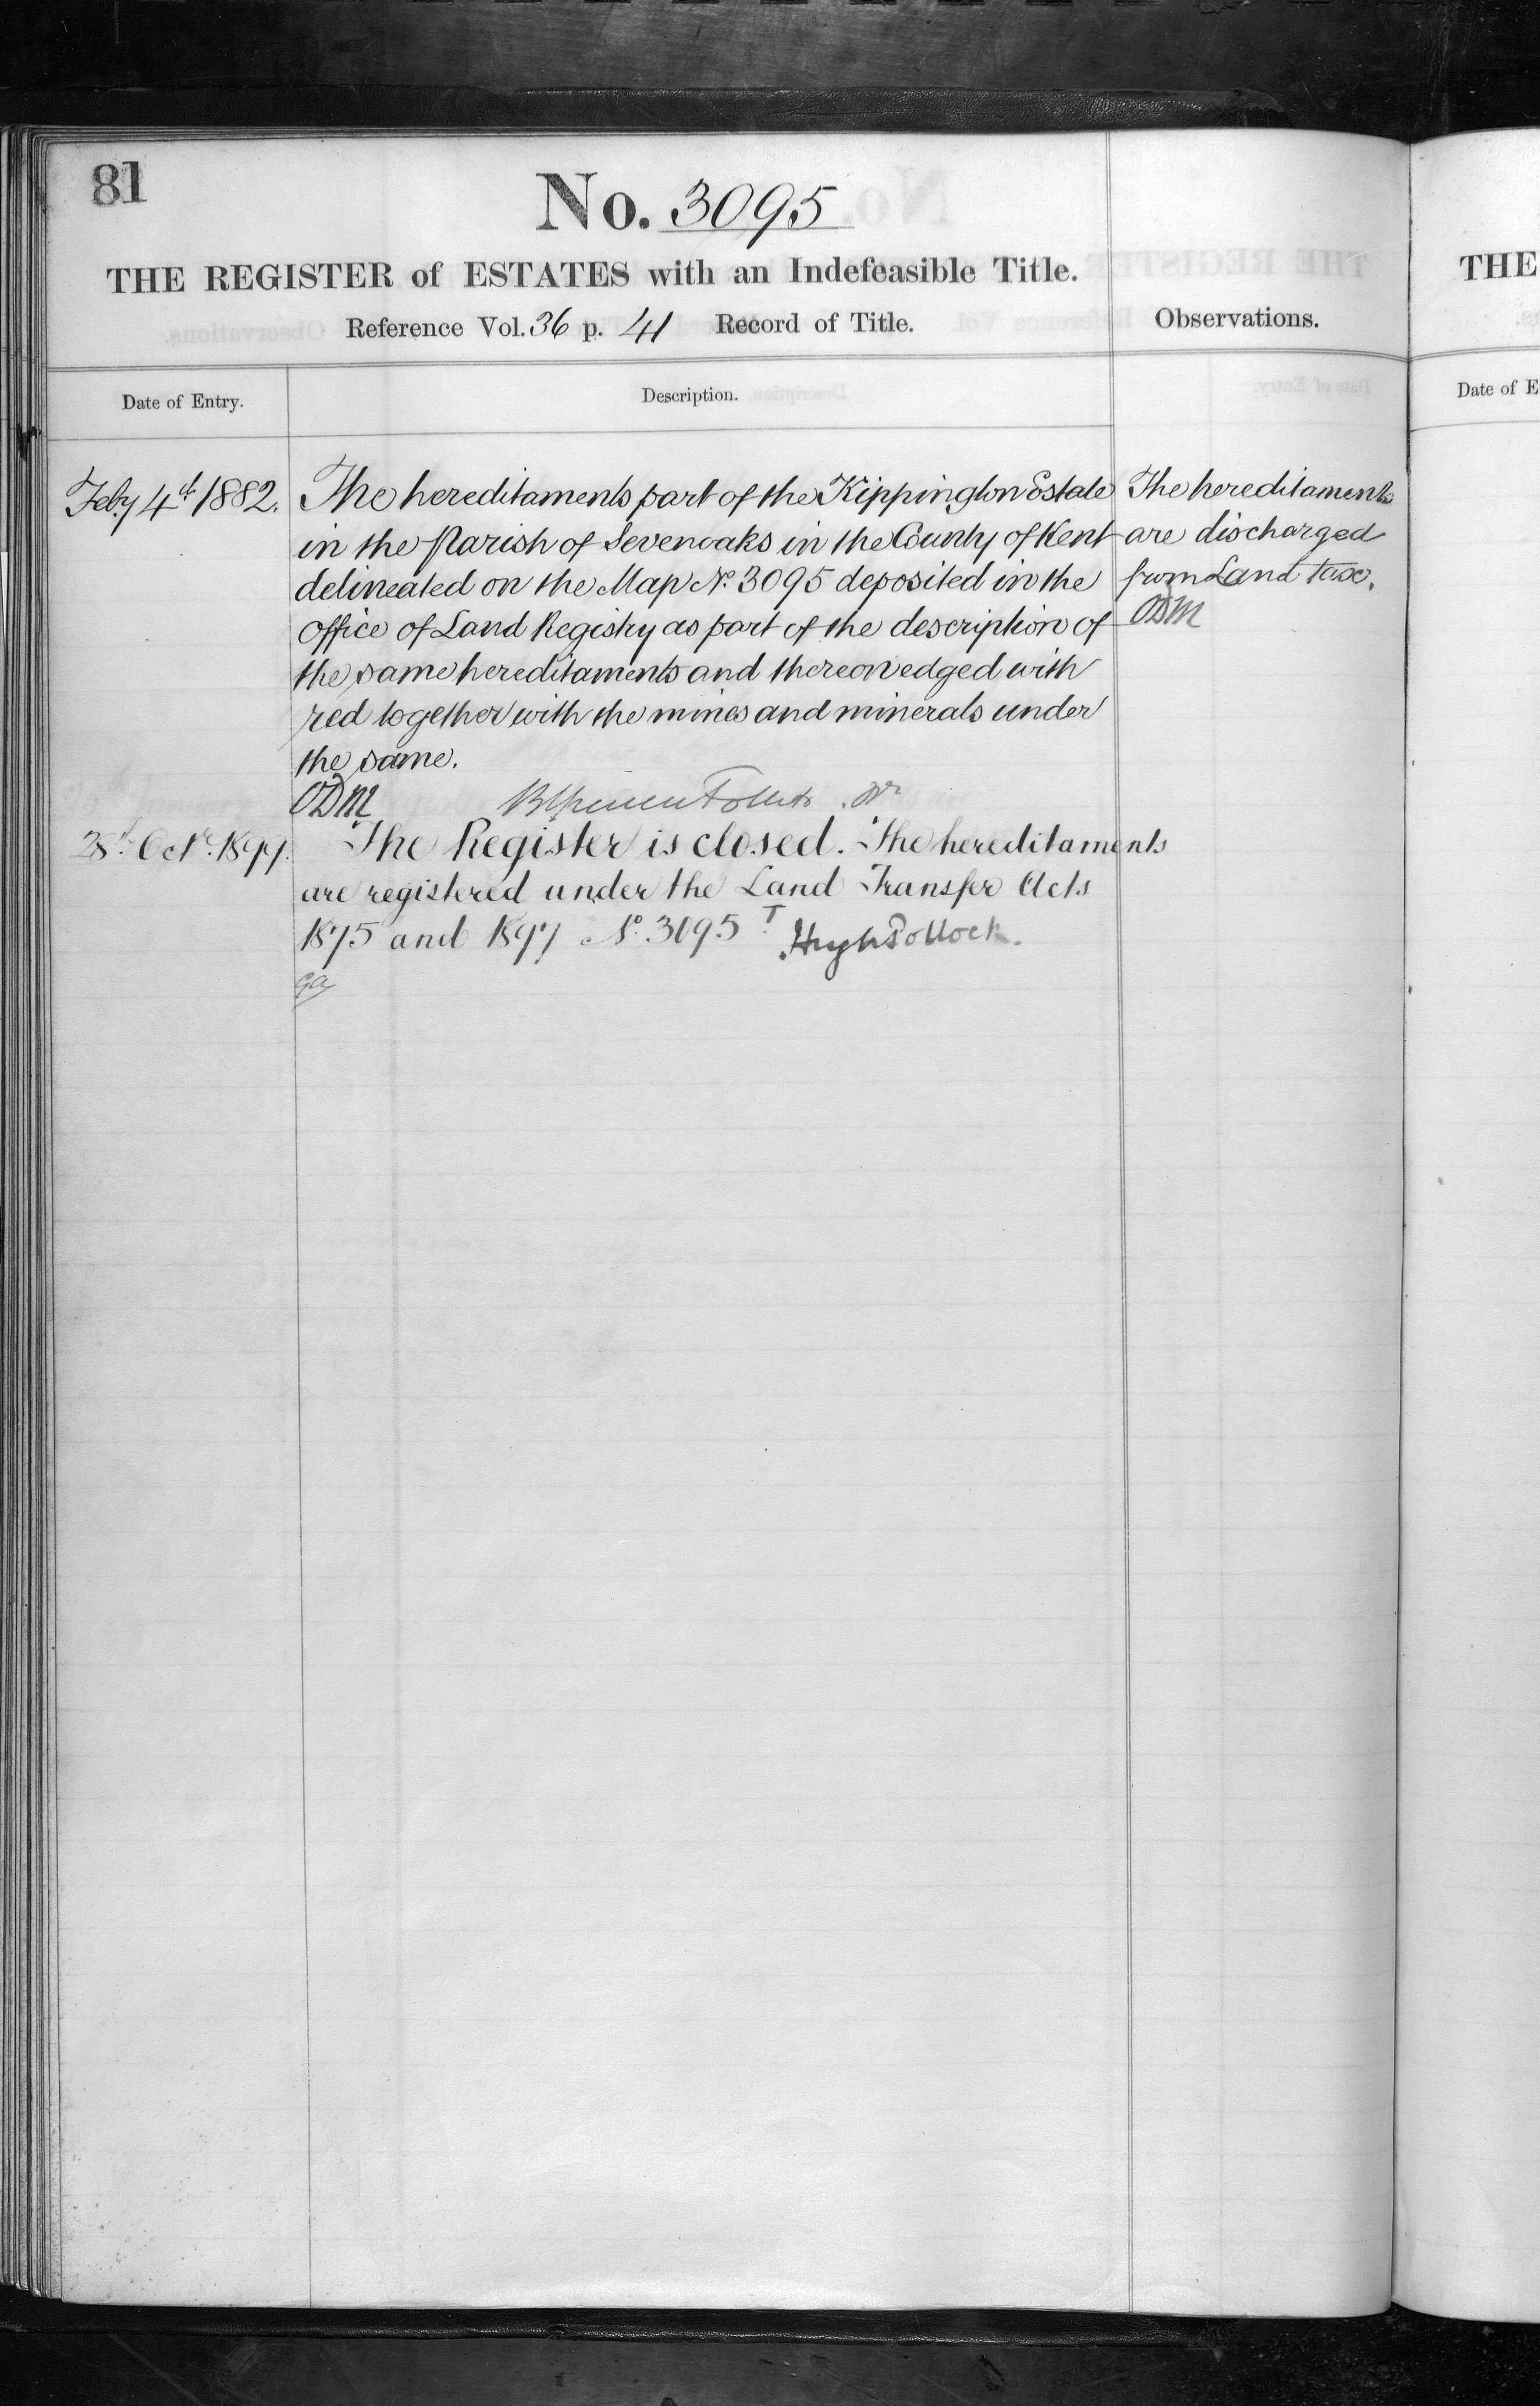 81
No. 3095
THE REGISTER of ESTATES with an Indefeasible Title.
Reference Vol. 36 p. 41 Record of Title.
Observations.
Date of Entry.
Description.
Feby 4th 1882.
The hereditaments part of the Kippington Estate
in the Parish of Sevenoaks in the County of Kent
delineated on the Map No. 3095 deposited in the
Office of Land Registry as part of the description of
the same hereditaments and thereon edged with
red together with the mines and minerals under
the same.
ODM
The hereditaments
are discharged
from Land tax.
ODM
28th Octr. 1899.
The Register is closed. The hereditaments
are registered under the Land Transfer Acts
1875 and 1897 No. 3095 T Hugh Pollock.
THE
Date of E